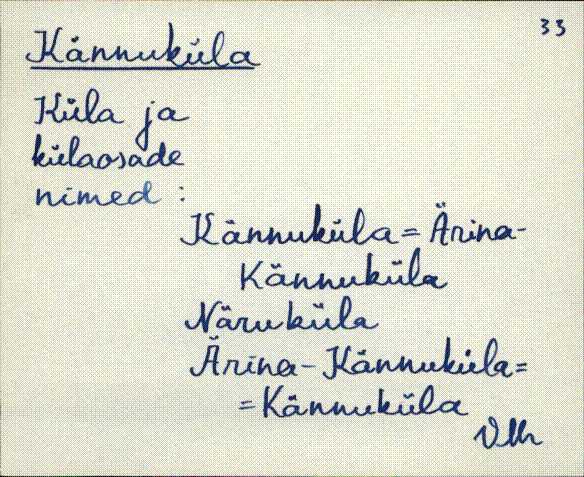 33
Kännuküla
Küla ja
külaosade
nimed :
Kännuküla = Ärina-
Kännuküla
Näruküla
Ärina-Kännuküla =
= Kännuküla